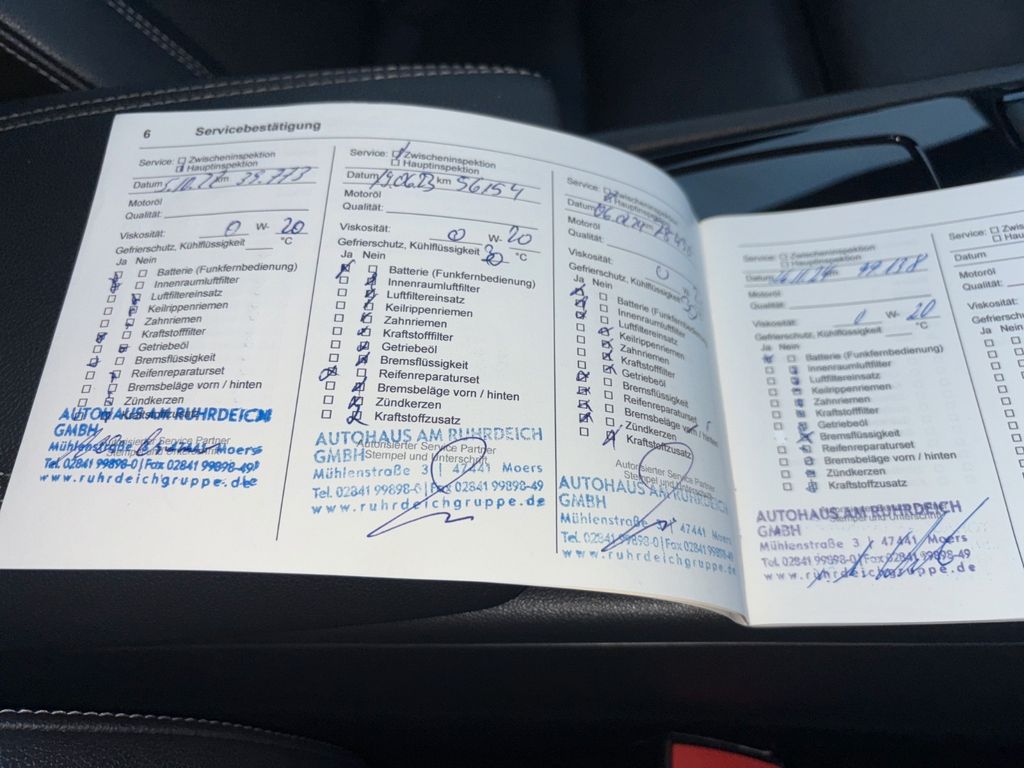 6 Servicebestätigung
Service: Zwischeninspektion
Hauptinspektion
Datum km 39.773
Motoröl
Qualität:
Viskosität: 0 W- 20
Gefrierschutz, Kühlflüssigkeit °C
Ja Nein
Batterie (Funkfernbedienung)
Innenraumluftfilter
Luftfiltereinsatz
Keilrippenriemen
Zahnriemen
Kraftstofffilter
Getriebeöl
Bremsflüssigkeit
Reifenreparaturset
Bremsbeläge vorn / hinten
Zündkerzen
Kraftstoffzusatz
AUTOHAUS AM RUHRDEICH
GMBH
Autorisierter Service Partner
Stempel und Unterschrift
Mühlenstraße 3 | 47441 Moers
Tel. 02841 99898-0 | Fax 02841 99898-49
www.ruhrdeichgruppe.de
Service: Zwischeninspektion
Hauptinspektion
Datum 19.06.23 km 56154
Motoröl
Qualität:
Viskosität: 0 W- 20
Gefrierschutz, Kühlflüssigkeit 30 °C
Ja Nein
Batterie (Funkfernbedienung)
Innenraumluftfilter
Luftfiltereinsatz
Keilrippenriemen
Zahnriemen
Kraftstofffilter
Getriebeöl
Bremsflüssigkeit
Reifenreparaturset
Bremsbeläge vorn / hinten
Zündkerzen
Kraftstoffzusatz
AUTOHAUS AM RUHRDEICH
GMBH
Autorisierter Service Partner
Stempel und Unterschrift
Mühlenstraße 3 | 47441 Moers
Tel. 02841 99898-0 | Fax 02841 99898-49
www.ruhrdeichgruppe.de
Service: Zwischeninspektion
Hauptinspektion
Datum km
Motoröl
Qualität:
Viskosität: 0 W
Gefrierschutz, Kühlflüssigkeit
Ja Nein
Batterie (Funkfernbedienung)
Innenraumluftfilter
Luftfiltereinsatz
Keilrippenriemen
Zahnriemen
Kraftstofffilter
Getriebeöl
Bremsflüssigkeit
Reifenreparaturset
Bremsbeläge vorn / hinten
Zündkerzen
Kraftstoffzusatz
Autorisierter Service Partner
Stempel und Unterschrift
AUTOHAUS AM RUHRDEICH
GMBH
Mühlenstraße 3 | 47441 Moers
Tel. 02841 99898-0 | Fax 02841 99898-49
www.ruhrdeichgruppe.de
Service: Zwischeninspektion
Hauptinspektion
Datum km 99138
Motoröl
Qualität:
Viskosität: 0 W- 20
Gefrierschutz, Kühlflüssigkeit °C
Ja Nein
Batterie (Funkfernbedienung)
Innenraumluftfilter
Luftfiltereinsatz
Keilrippenriemen
Zahnriemen
Kraftstofffilter
Getriebeöl
Bremsflüssigkeit
Reifenreparaturset
Bremsbeläge vorn / hinten
Zündkerzen
Kraftstoffzusatz
AUTOHAUS AM RUHRDEICH
GMBH
Stempel und Unterschrift
Mühlenstraße 3 | 47441 Moers
Tel. 02841 99898-0 | Fax 02841 99898-49
www.ruhrdeichgruppe.de
Service:
Datum
Motoröl
Qualität:
Viskosität:
Gefrierschutz
Ja Nein